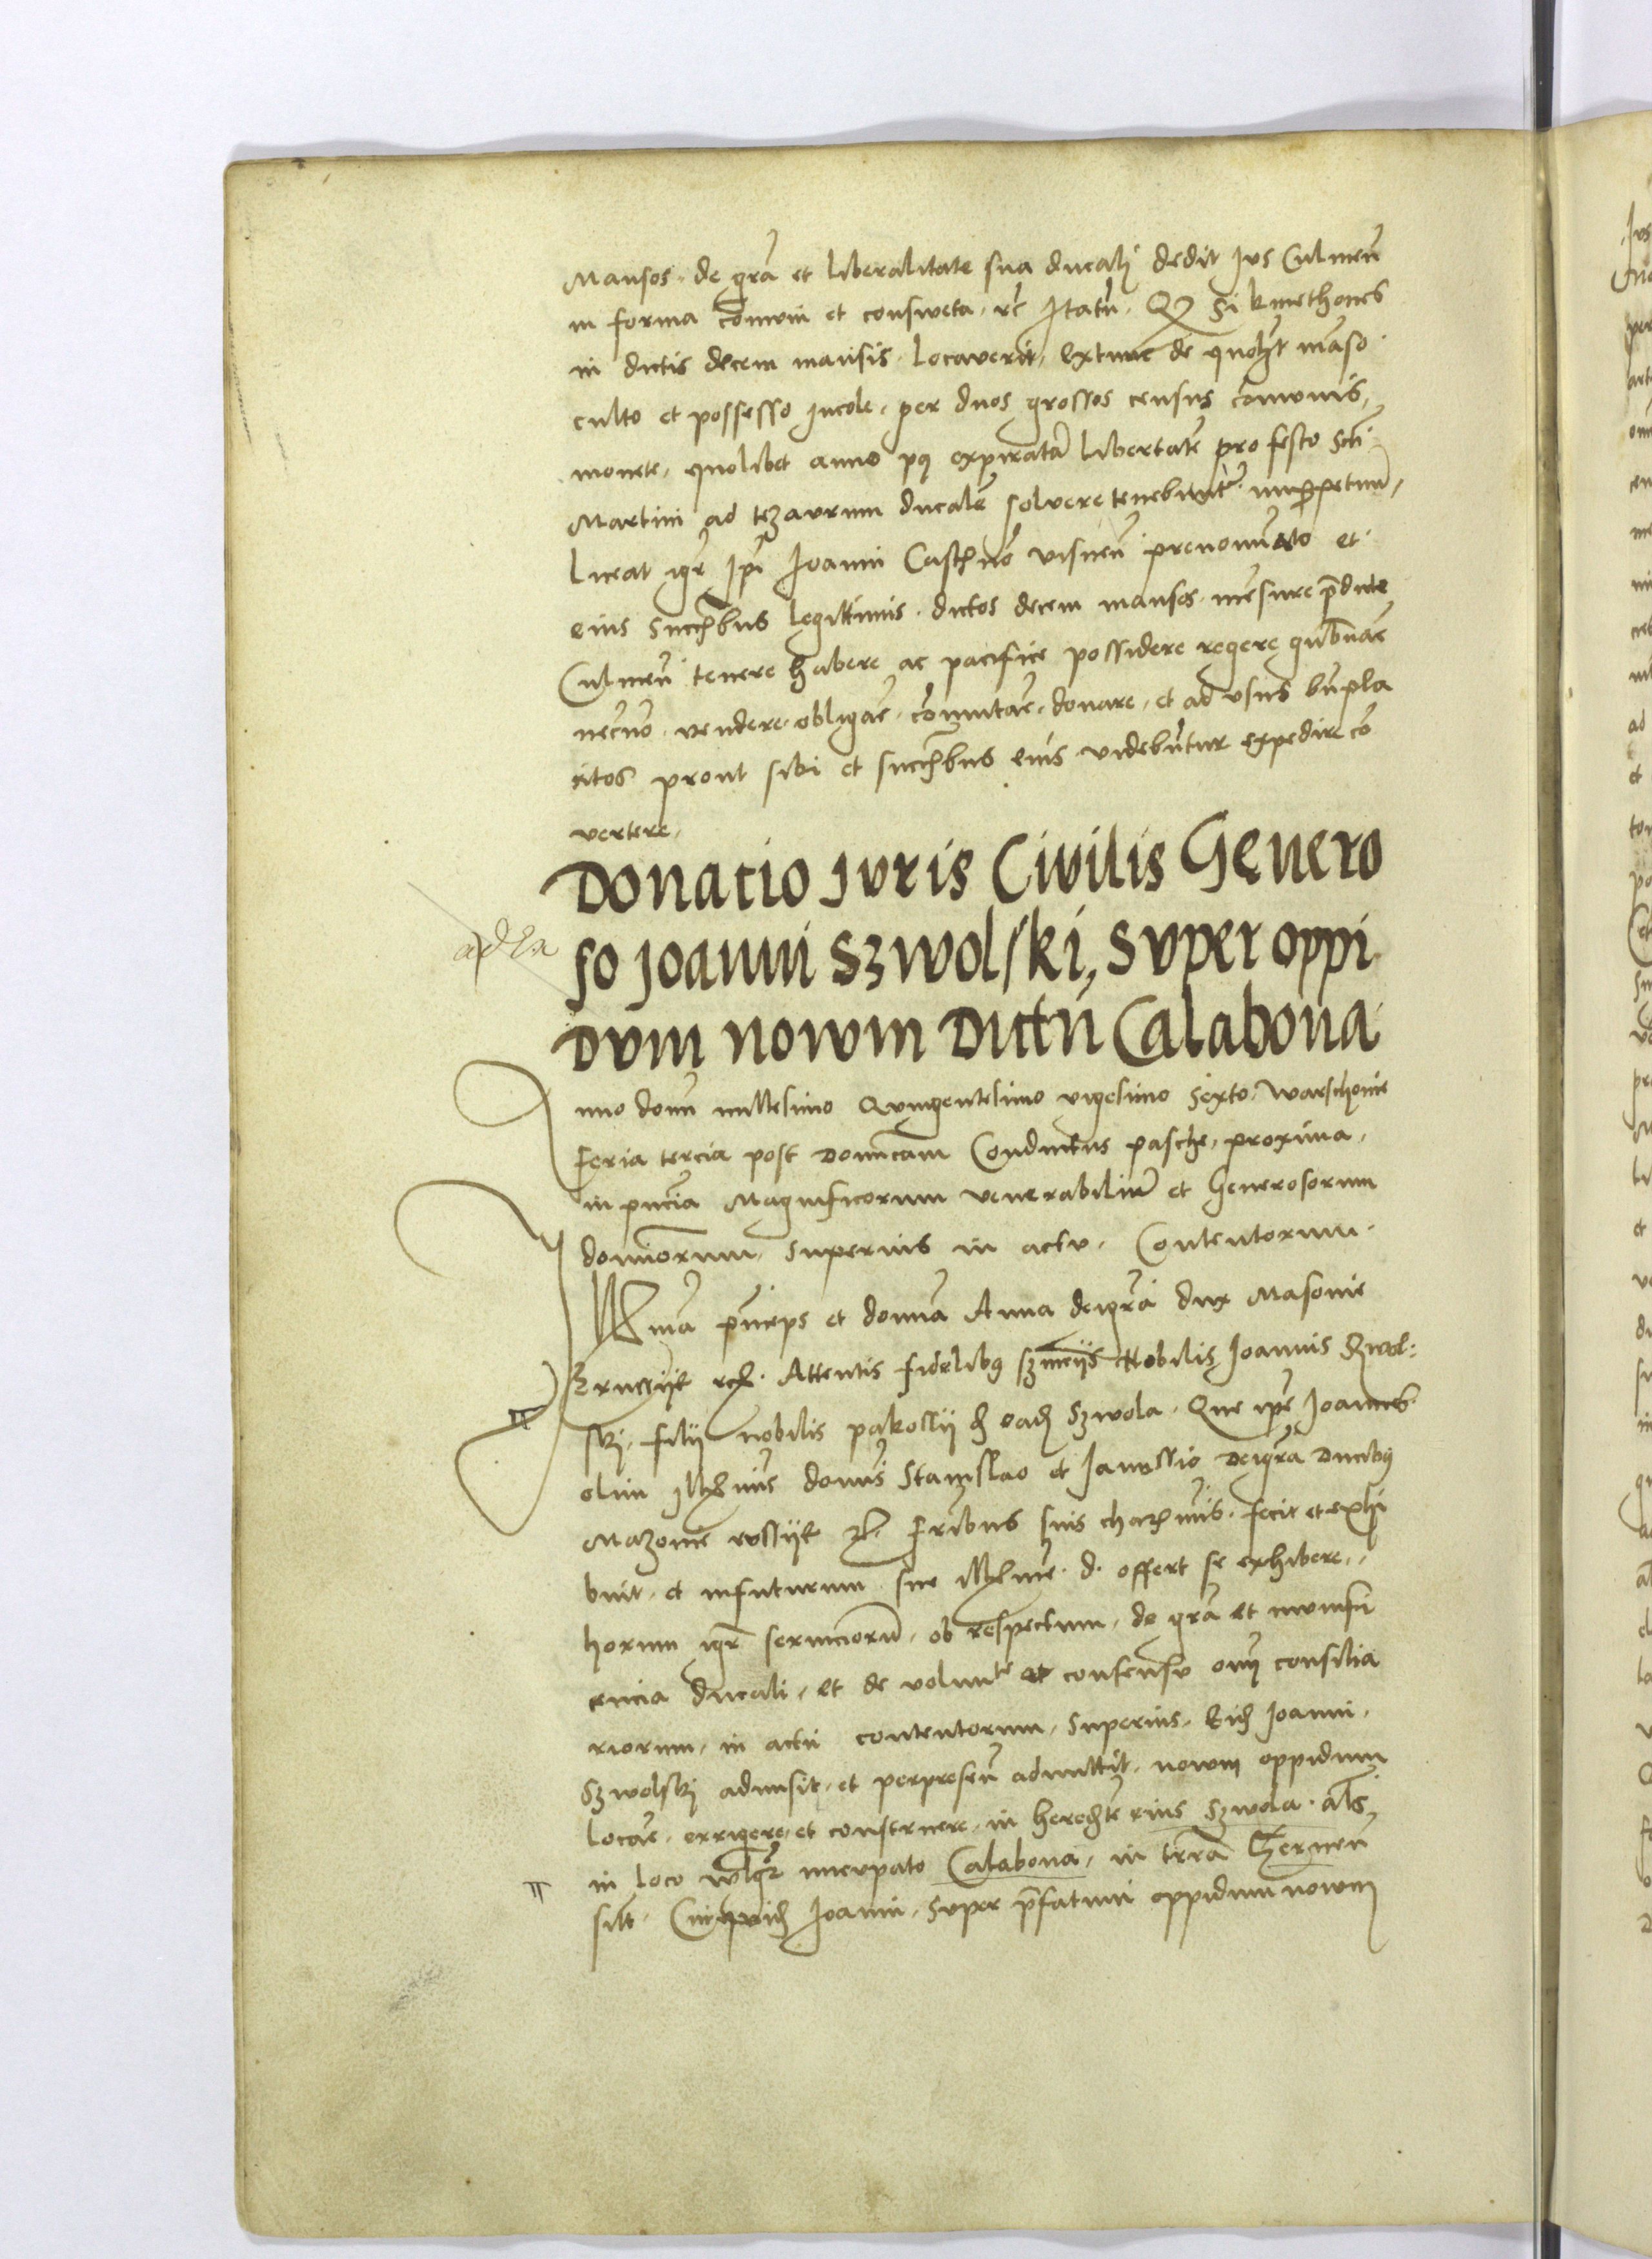 Mansos de grã et liberalitate sua ducali dedit Jus Culmeñ
in forma comuni et consweta rc Itatñ Q Si kmethones
in dictis decem mansis locaverit, extunc de quolt manso
culto et possesso incole, per duos grossos census comunis,
monete, quolibet anno pq expiratã libertatẽ pro festo scti
Martini ad tezaurum ducalẽ solvere tenebuntr imperpetuum,
Liceat igr Ipi Joanni Castnō visneñ prenominato et
eius succribus legittimis dictos decem mansos mẽsure predicte
Culmeñ tenere habere ac pacifice possidere regere gubnare
necno vendere obligare comutare donare, et ad usus bnpla
citos prout sibi et succribus eius videbuntur expedire co
vertere,
Donatio juris Civilis Genero
so joanni Szwolski, super oppi
dum nowum dictũ Calabona
nno domi millesimo quingentesimo vigesimo sexto, Warschowie
Feria tercia post Dominicam Conductus pasche, proxima,
in pncia Magnificorum venerabiliũ et Generosorum
dominorum, superius in actu, Contentorum.
Illma princeps et domina Anna deigrã dux Masovie
Russiȩ rc. Attentis fidelibus serviciis Nobilis Joannis Szwol-
ski, filii nobilis pakossii de eadem Szwola. Que ipse Joannes
olim Illmis domis Stanislao et Janussio Deigra Ducibus
Mazovie russiȩ rc. Fribus suis charmis. fecit et exhi
buit, et infuturum sue Illme d. offert se exhibere,
horum igr serviciorũ, ob respectum, de grã et munifi
cencia ducali, et de volunte et consensu omi consilia
riorum, in actu contentorum, superius, Eid Joanni,
Szwolski admisit, et perpreseñ admittit, nowm oppidum
locare, errigere, et construere, in heredte eius Szwola, als
in loco wlgr nncupato Calabona, in trra Czerneñ
silt. Cui quid Joanni, super prefatum oppidum nowm